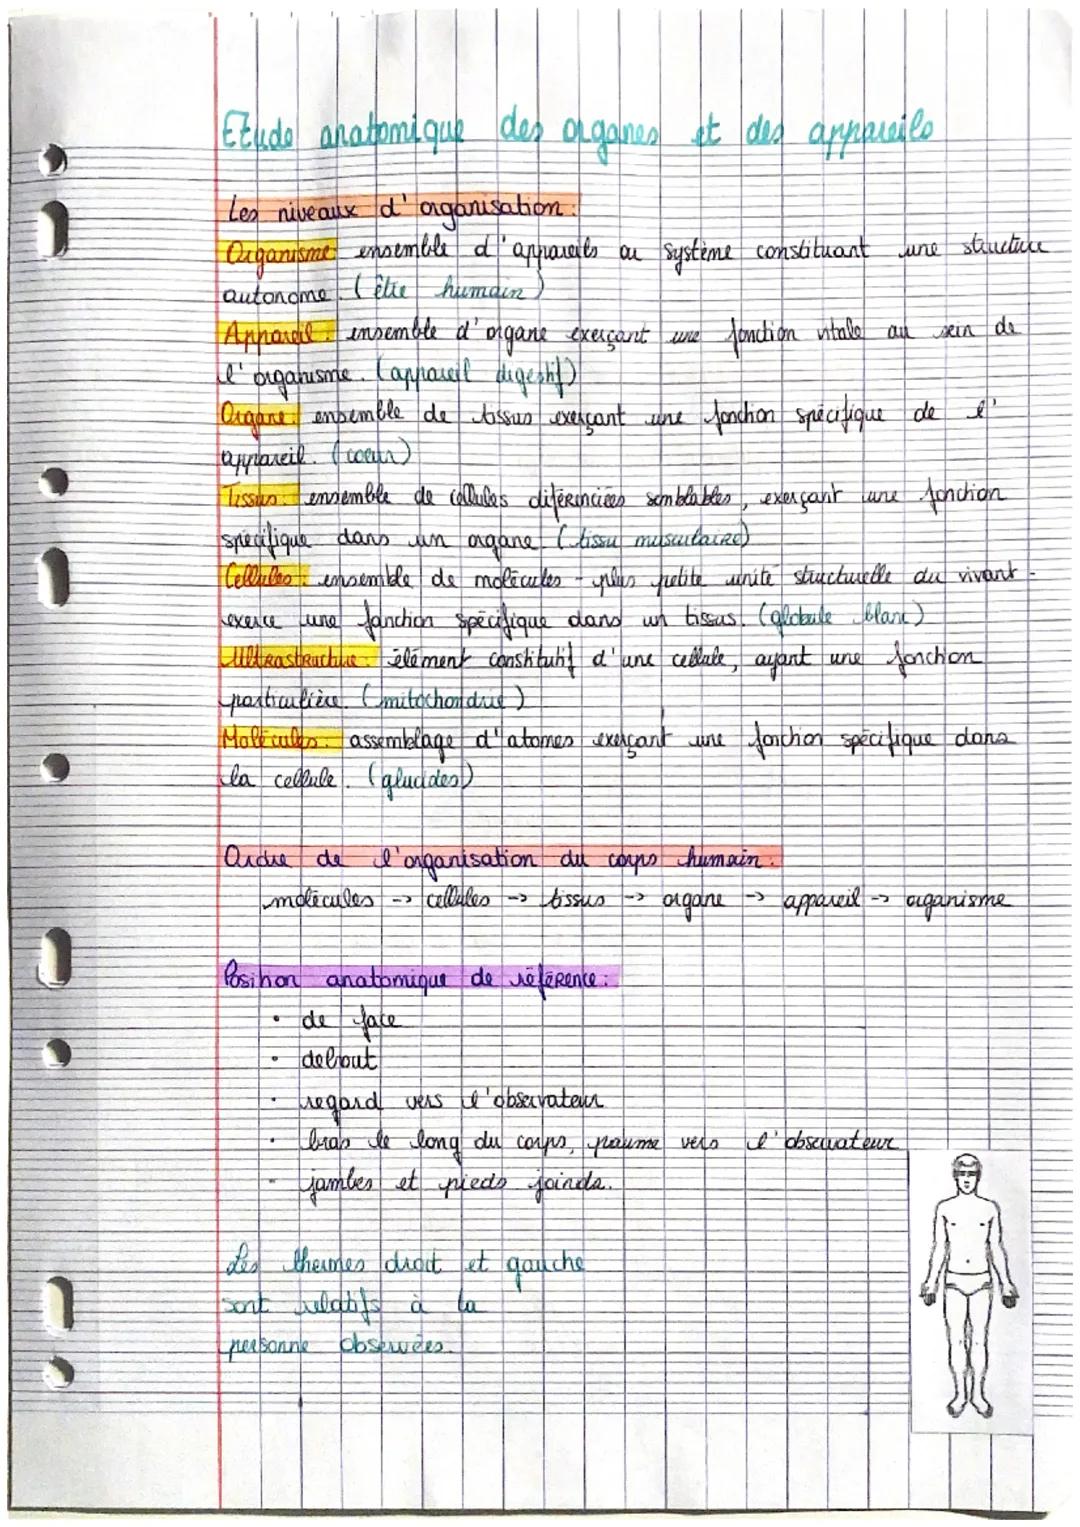 Etude anatomique des organes et des appareils
Les niveaux d'organisation :
Organisme : ensemble d'appareils ou système constituant une structure
autonome. (être humain)
Appareil : ensemble d'organe exerçant une fonction vitale au sein de
l'organisme. (appareil digestif)
Organe : ensemble de tissus exerçant une fonction spécifique de l'
appareil. (coeur)
Tissus : ensemble de cellules diférenciées semblables, exerçant une fonction
spécifique dans un organe. (tissu musculaire)
Cellules : ensemble de molécules - plus petite unité structurelle du vivant -
exerce une fonction spécifique dans un tissus. (globule blanc)
Ultrastructure : élément constitutif d'une cellule, ayant une fonction
particulière. (mitochondrie)
Molécules : assemblage d'atomes exerçant une fonction spécifique dans
la cellule. (glucides)
Ordre de l'organisation du corps humain :
molécules -> cellules -> tissus -> organe -> appareil -> organisme
Position anatomique de référence :
• de face
• debout
• regard vers l'observateur
• bras le long du corps, paume vers l'observateur
• jambes et pieds joinds.
Les thermes droit et gauche
sont relatifs à la
personne observées.